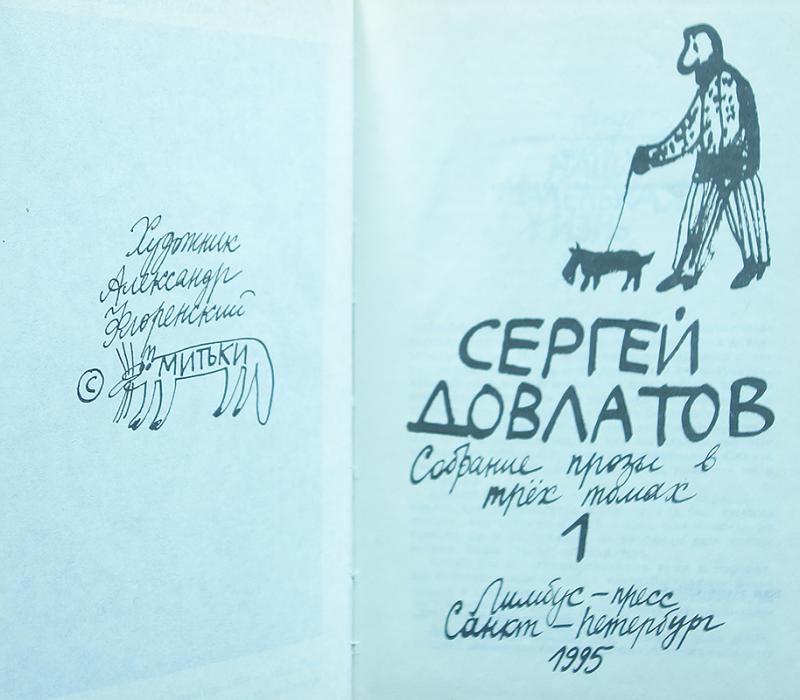 Художник
Александр
Флоренский
© МИТЬКИ
СЕРГЕЙ
ДОВЛАТОВ
Собрание прозы в
трёх томах
1
Лимбус-пресс
Санкт-Петербург
1995